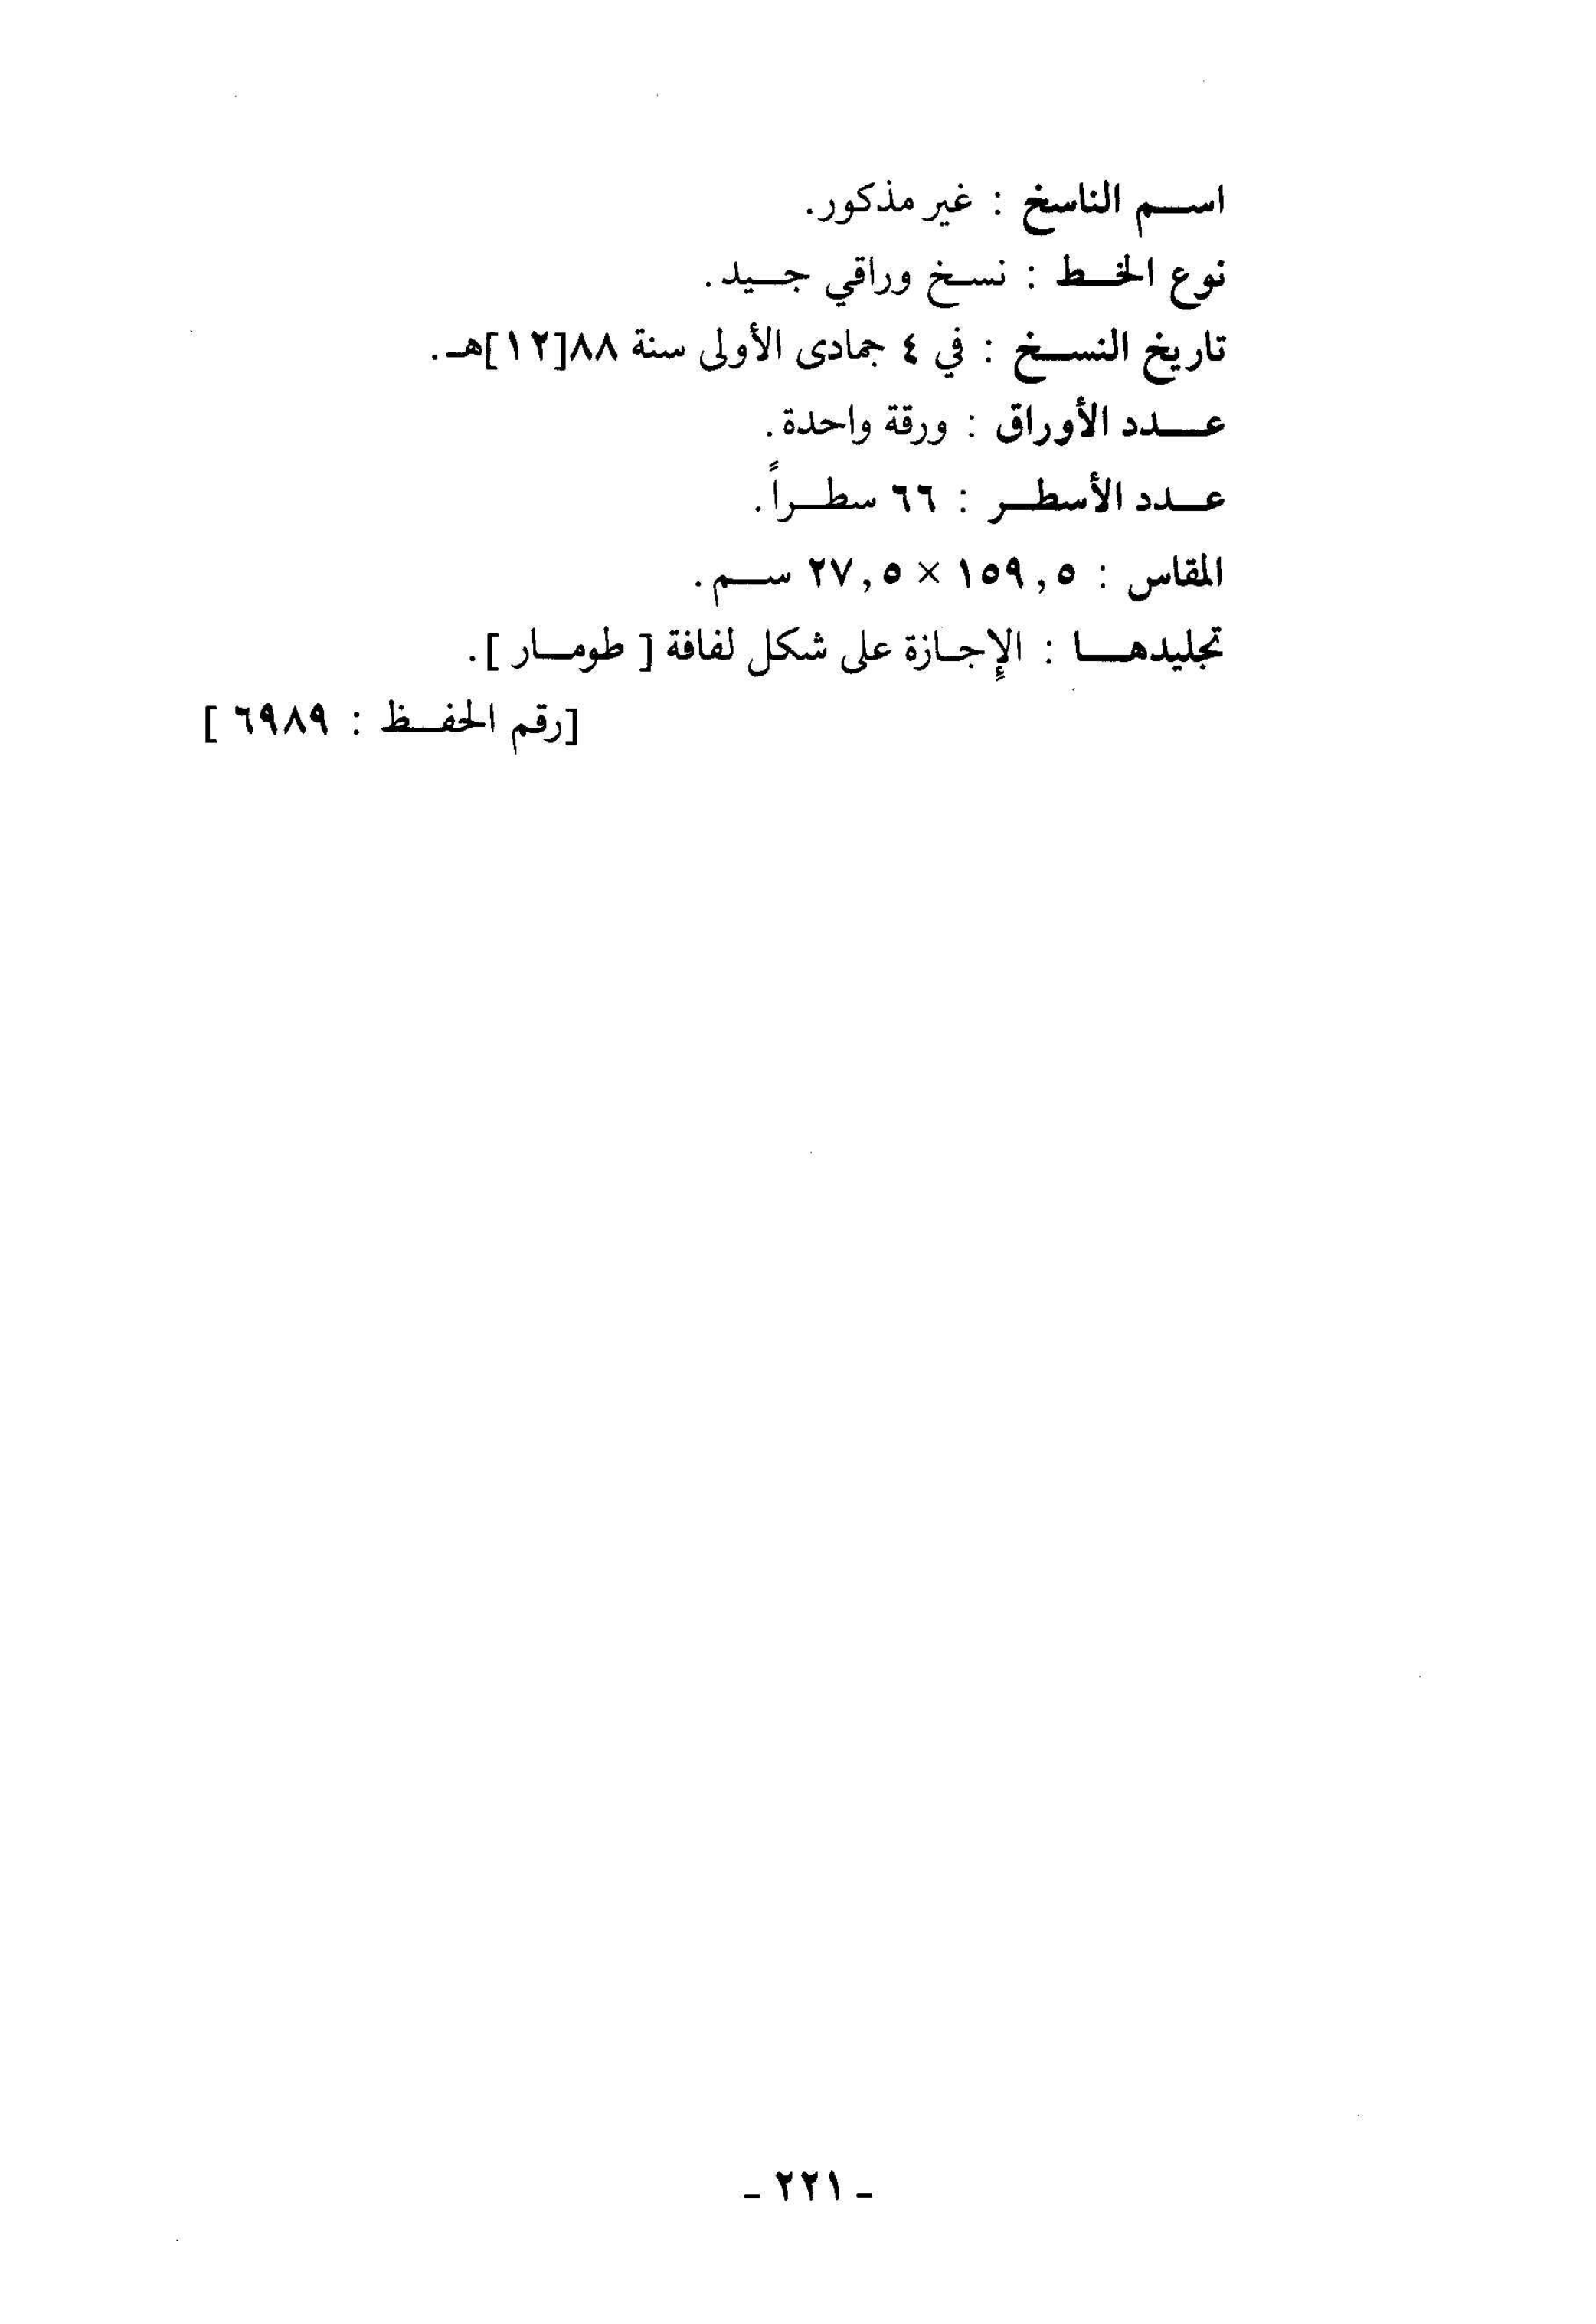 اسم الناسخ : غير مذكور.
نوع الخط : نسخ وراقي جيد.
تاريخ النسخ : في ٤ جمادى الأولى سنة ٨٨[١٢]هـ.
عدد الأوراق : ورقة واحدة.
عدد الأسطر : ٦٦ سطراً.
المقاس : ١٥٩,٥ × ٢٧,٥ سم.
تجليدها : الإجازة على شكل لفافة [ طومار ].
[رقم الحفظ : ٦٩٨٩ ]
- ٢٢١ -